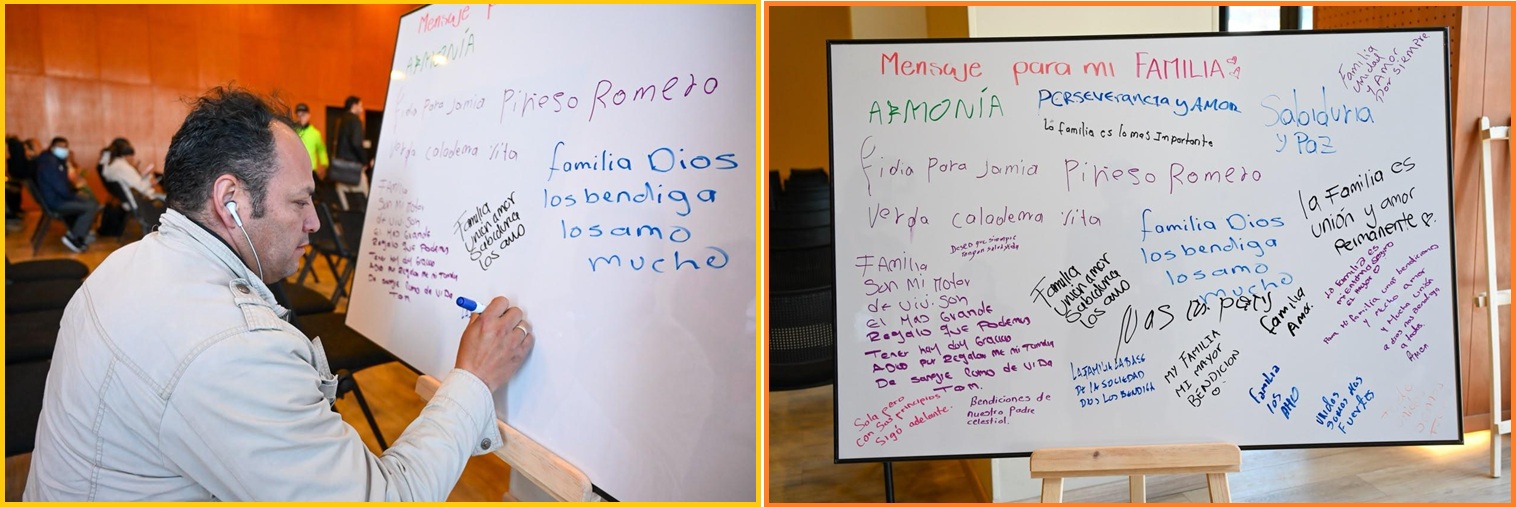 Mensaje p
ARMONÍA
fidia Para Jamia Piñeso Romero
Verda caladema Vita
familia Dios
los bendiga
los amo
mucho
FAmilia
Son Mi Motor
de Viv. Son
El Mas Grande
Regalo que Podemos
Tener hoy doy Gracias
De sangre Como de ViDa
Tom.
Familia
Unión amor
Sabiduria
los amo
Mensaje para mi FAMILIA
ARMONÍA
PERSEVERANCIA y AMOR
la familia es lo mas Importante
Sabiduria
y Paz
Familia
Unidad
y Amor
Por siempre
fidia Para Jamia Piñeso Romero
Verda caladema Vita
Deseo que siempre
familia Dios
los bendiga
los amo
mucho
la Familia es
unión y amor
Permanente
FAmilia
Son Mi Motor
de Viv. Son
El Mas Grande
Regalo que Podemos
Tener hoy doy Gracias
A Dios por Regalarme mi Familia
De sangre Como de ViDa
Tom.
Familia
Unión amor
Sabiduria
los amo
familia
Amor.
la familia es
el mejor
Para mi familia unas bendiciones
y mucho amor
y Mucha Unión
a dios nos bendiga
a todos
Amen
LA FAMILIA LA BASE
DE LA SOCIEDAD
DIOS LOS BENDIGA
MY FAMILIA
MI MAYOR
BENDICION
Familia
los
AMO
Unidos
somos Mas
Fuertes
Sola pero
con sus principios
sigó adelante.
Bendiciones de
nuestro Padre
celestial.